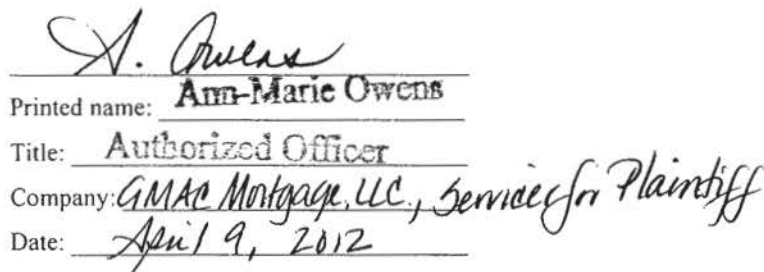 A. Owens
Printed name: Ann-Marie Owens
Title: Authorized Officer
Company: GMAC Mortgage, LLC, Servicer for Plaintiff
Date: April 9, 2012